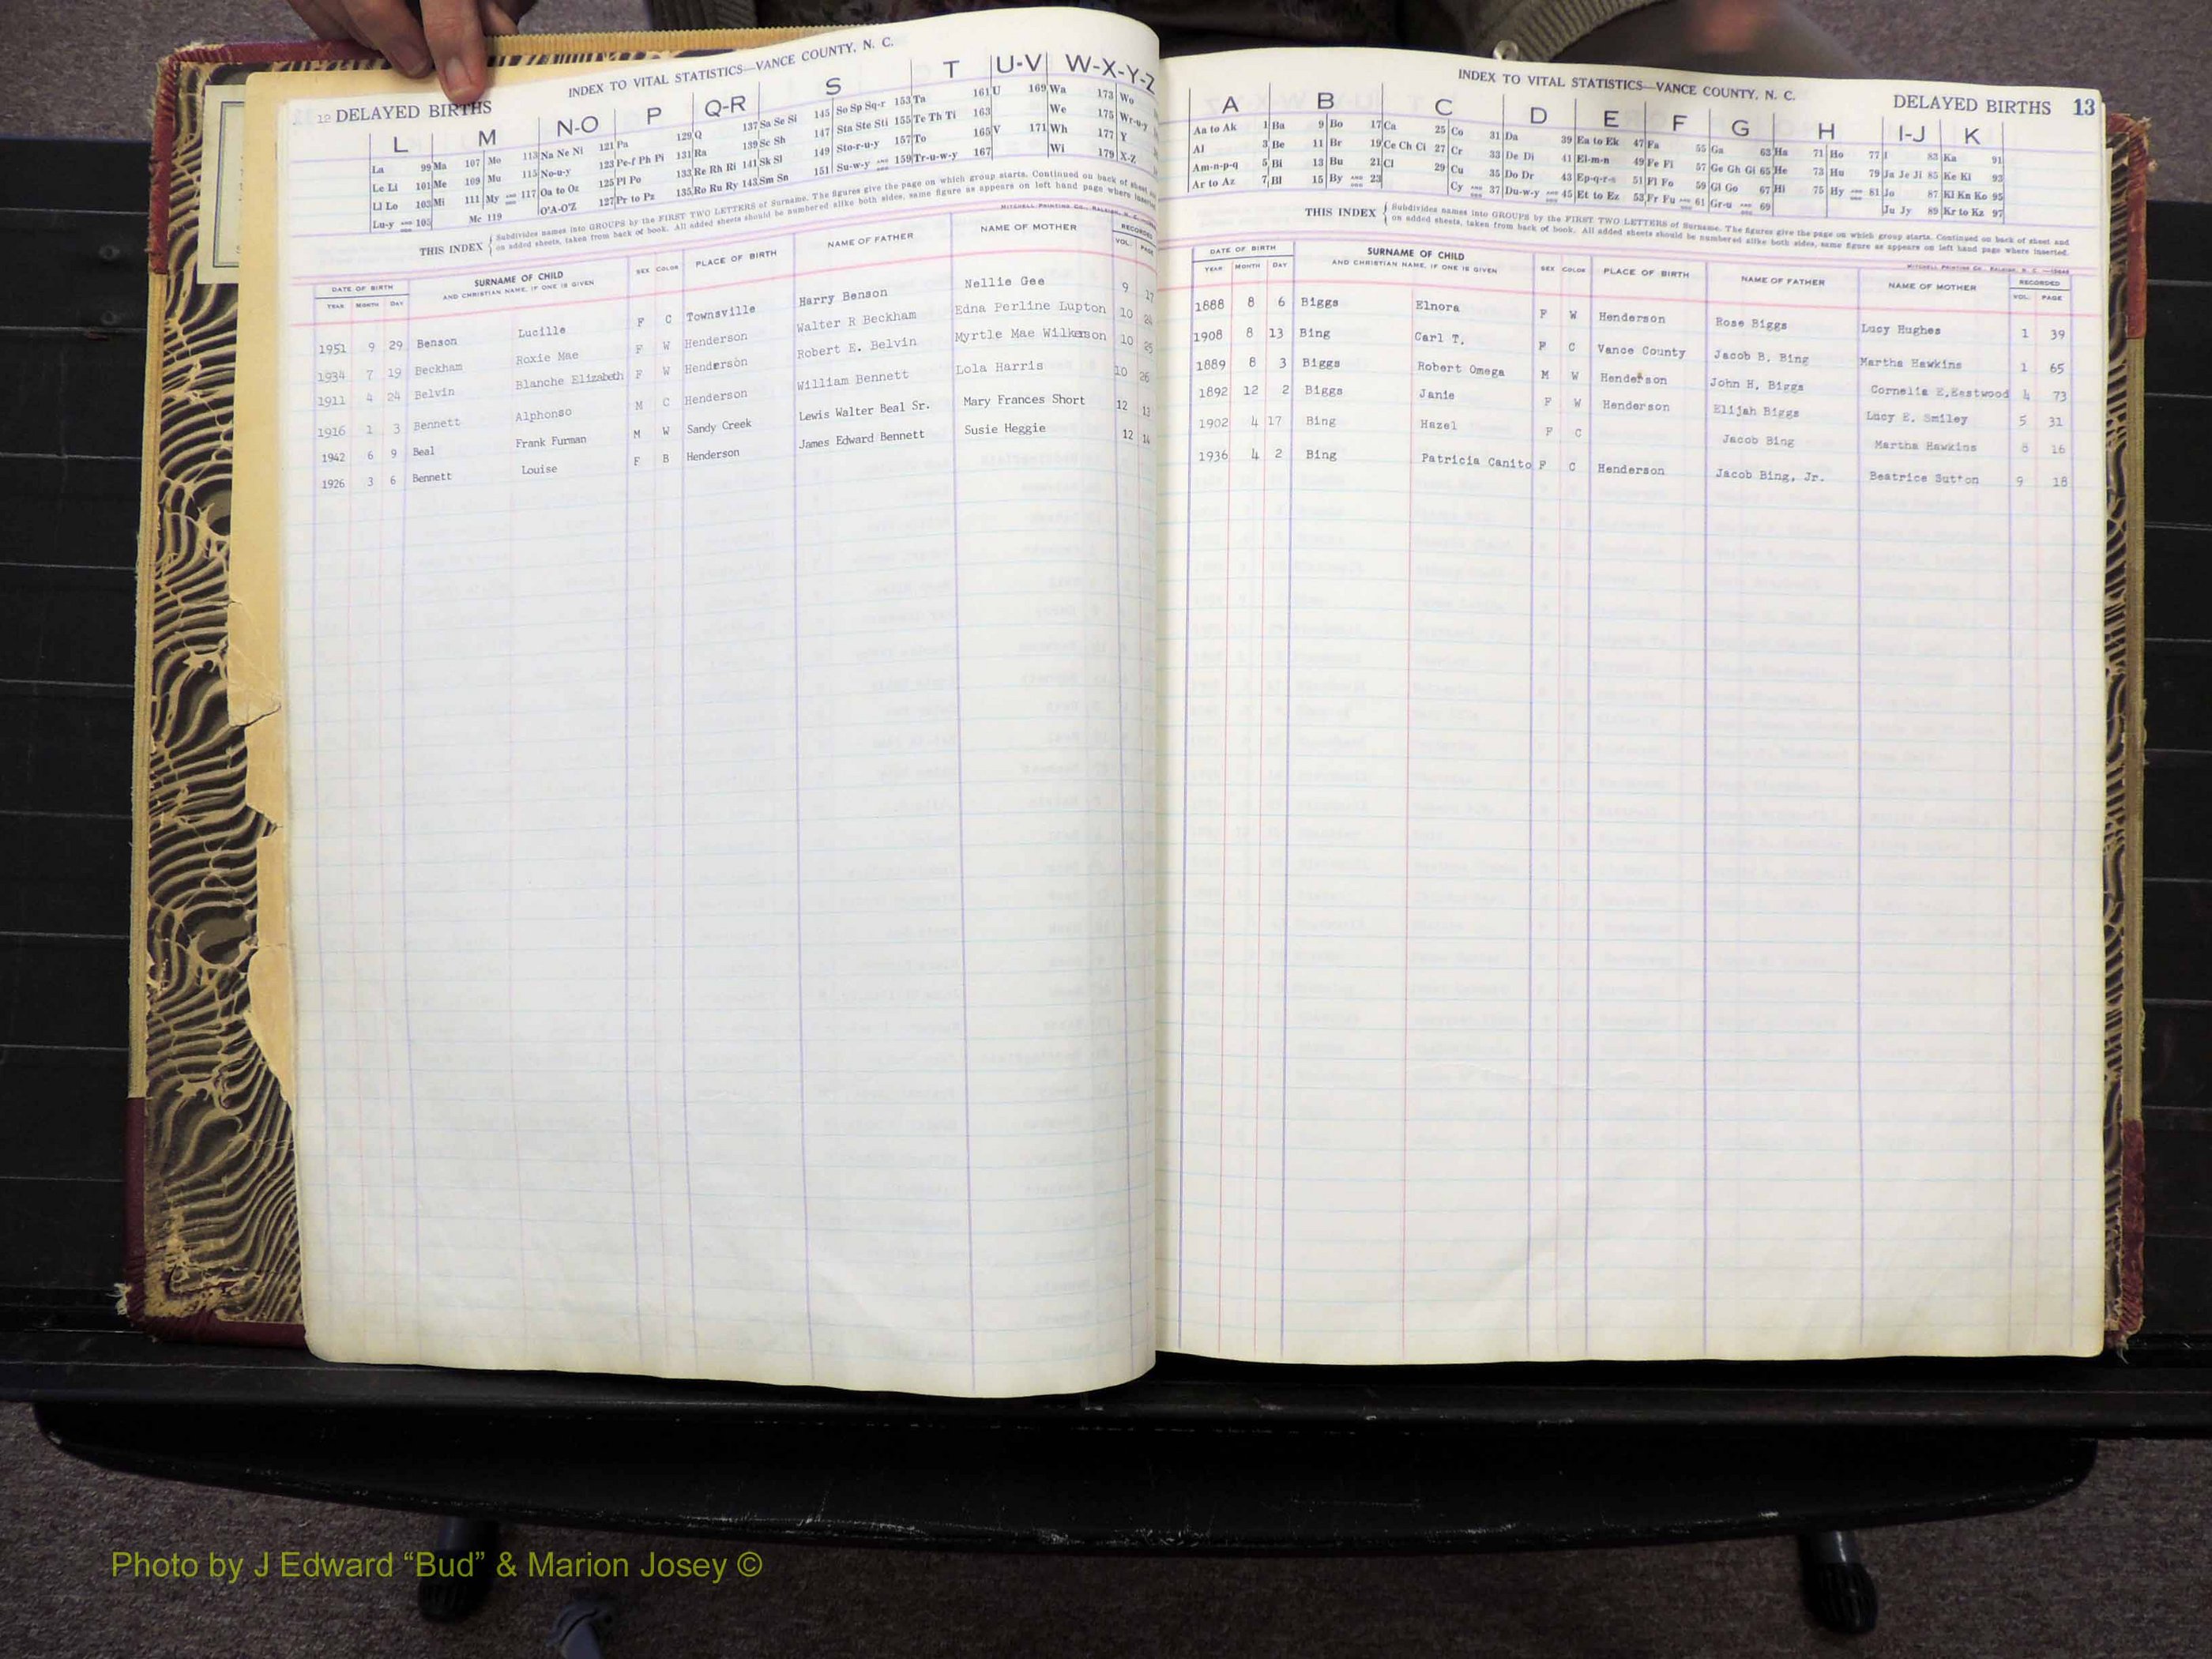 12 DELAYED BIRTHS
INDEX TO VITAL STATISTICS—VANCE COUNTY, N. C.
L M N-O P Q-R S T U-V W-X-Y-Z
La 99 Ma 107 Mo 113 Na Ne Ni 121 Pa 129 Q 137 Sa Se Si 145 So Sp Sq-r 153 Ta 161 U 169 Wa 173 Wo
Le Li 101 Me 109 Mu 115 No-u-y 123 Pe-f Ph Pi 131 Ra 139 Sc Sh 147 Sta Ste Sti 155 Te Th Ti 163 We 175 Wr-u-y
Ll Lo 103 Mi 111 My AND 117 Oa to Oz 125 Pl Po 133 Re Rh Ri 141 Sk Sl 149 Sto-r-u-y 157 To 165 V 171 Wh 177 Y
Lu-y AND 105 Mc 119 O'A-O'Z 127 Pr to Pz 135 Ro Ru Ry 143 Sm Sn 151 Su-w-y AND 159 Tr-u-w-y 167 Wi 179 X-Z
THIS INDEX { Subdivides names into GROUPS by the FIRST TWO LETTERS of Surname. The figures give the page on which group starts. Continued on back of sheet and
on added sheets, taken from back of book. All added sheets should be numbered alike both sides, same figure as appears on left hand page where inserted.
MITCHELL PRINTING CO., RALEIGH, N. C.
DATE OF BIRTH SURNAME OF CHILD SEX COLOR PLACE OF BIRTH NAME OF FATHER NAME OF MOTHER RECORDED
YEAR MONTH DAY AND CHRISTIAN NAME, IF ONE IS GIVEN VOL. PAGE
1951 9 29 Benson Lucille F C Townsville Harry Benson Nellie Gee 9 17
1934 7 19 Beckham Roxie Mae F W Henderson Walter R Beckham Edna Perline Lupton 10 24
1911 4 24 Belvin Blanche Elizabeth F W Henderson Robert E. Belvin Myrtle Mae Wilkerson 10 25
1916 1 3 Bennett Alphonso M C Henderson William Bennett Lola Harris 10 26
1942 6 9 Beal Frank Furman M W Sandy Creek Lewis Walter Beal Sr. Mary Frances Short 12 13
1926 3 6 Bennett Louise F B Henderson James Edward Bennett Susie Heggie 12 14
INDEX TO VITAL STATISTICS—VANCE COUNTY, N. C.
DELAYED BIRTHS 13
A B C D E F G H I-J K
Aa to Ak 1 Ba 9 Bo 17 Ca 25 Co 31 Da 39 Ea to Ek 47 Fa 55 Ga 63 Ha 71 Ho 77 I 83 Ka 91
Al 3 Be 11 Br 19 Ce Ch Ci 27 Cr 33 De Di 41 El-m-n 49 Fe Fi 57 Ge Gh Gi 65 He 73 Hu 79 Ja Je Ji 85 Ke Ki 93
Am-n-p-q 5 Bi 13 Bu 21 Cl 29 Cu 35 Do Dr 43 Ep-q-r-s 51 Fl Fo 59 Gl Go 67 Hi 75 Hy AND 81 Jo 87 Kl Kn Ko 95
Ar to Az 7 Bl 15 By AND 23 Cy AND 37 Du-w-y AND 45 Et to Ez 53 Fr Fu AND 61 Gr-u AND 69 Ju Jy 89 Kr to Kz 97
THIS INDEX { Subdivides names into GROUPS by the FIRST TWO LETTERS of Surname. The figures give the page on which group starts. Continued on back of sheet and
on added sheets, taken from back of book. All added sheets should be numbered alike both sides, same figure as appears on left hand page where inserted.
MITCHELL PRINTING CO., RALEIGH, N. C.
DATE OF BIRTH SURNAME OF CHILD SEX COLOR PLACE OF BIRTH NAME OF FATHER NAME OF MOTHER RECORDED
YEAR MONTH DAY AND CHRISTIAN NAME, IF ONE IS GIVEN VOL. PAGE
1888 8 6 Biggs Elnora F W Henderson Rose Biggs Lucy Hughes 1 39
1908 8 13 Bing Carl T. F C Vance County Jacob B. Bing Martha Hawkins 1 65
1889 8 3 Biggs Robert Omega M W Henderson John H. Biggs Cornelia E.Eastwood 4 73
1892 12 2 Biggs Janie F W Henderson Elijah Biggs Lucy E. Smiley 5 31
1902 4 17 Bing Hazel F C Jacob Bing Martha Hawkins 8 16
1936 4 2 Bing Patricia Canito F C Henderson Jacob Bing, Jr. Beatrice Sutton 9 18
Photo by J Edward “Bud” & Marion Josey ©